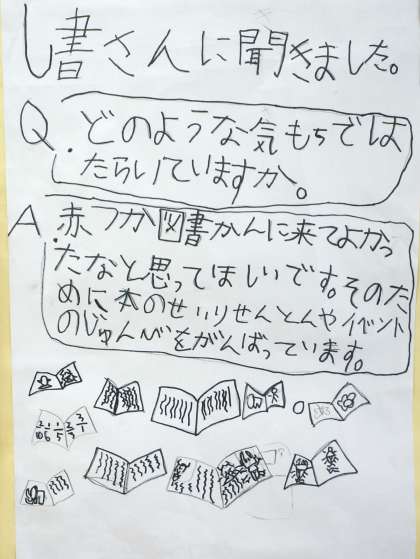 し書さんに聞きました。
Q.どのような気もちではたらいていますか。
A.赤つか図書かんに来てよかっ
たなと思ってほしいです。そのた
めに本のせいりせんとんやイベント
のじゅんべをがんばっています。